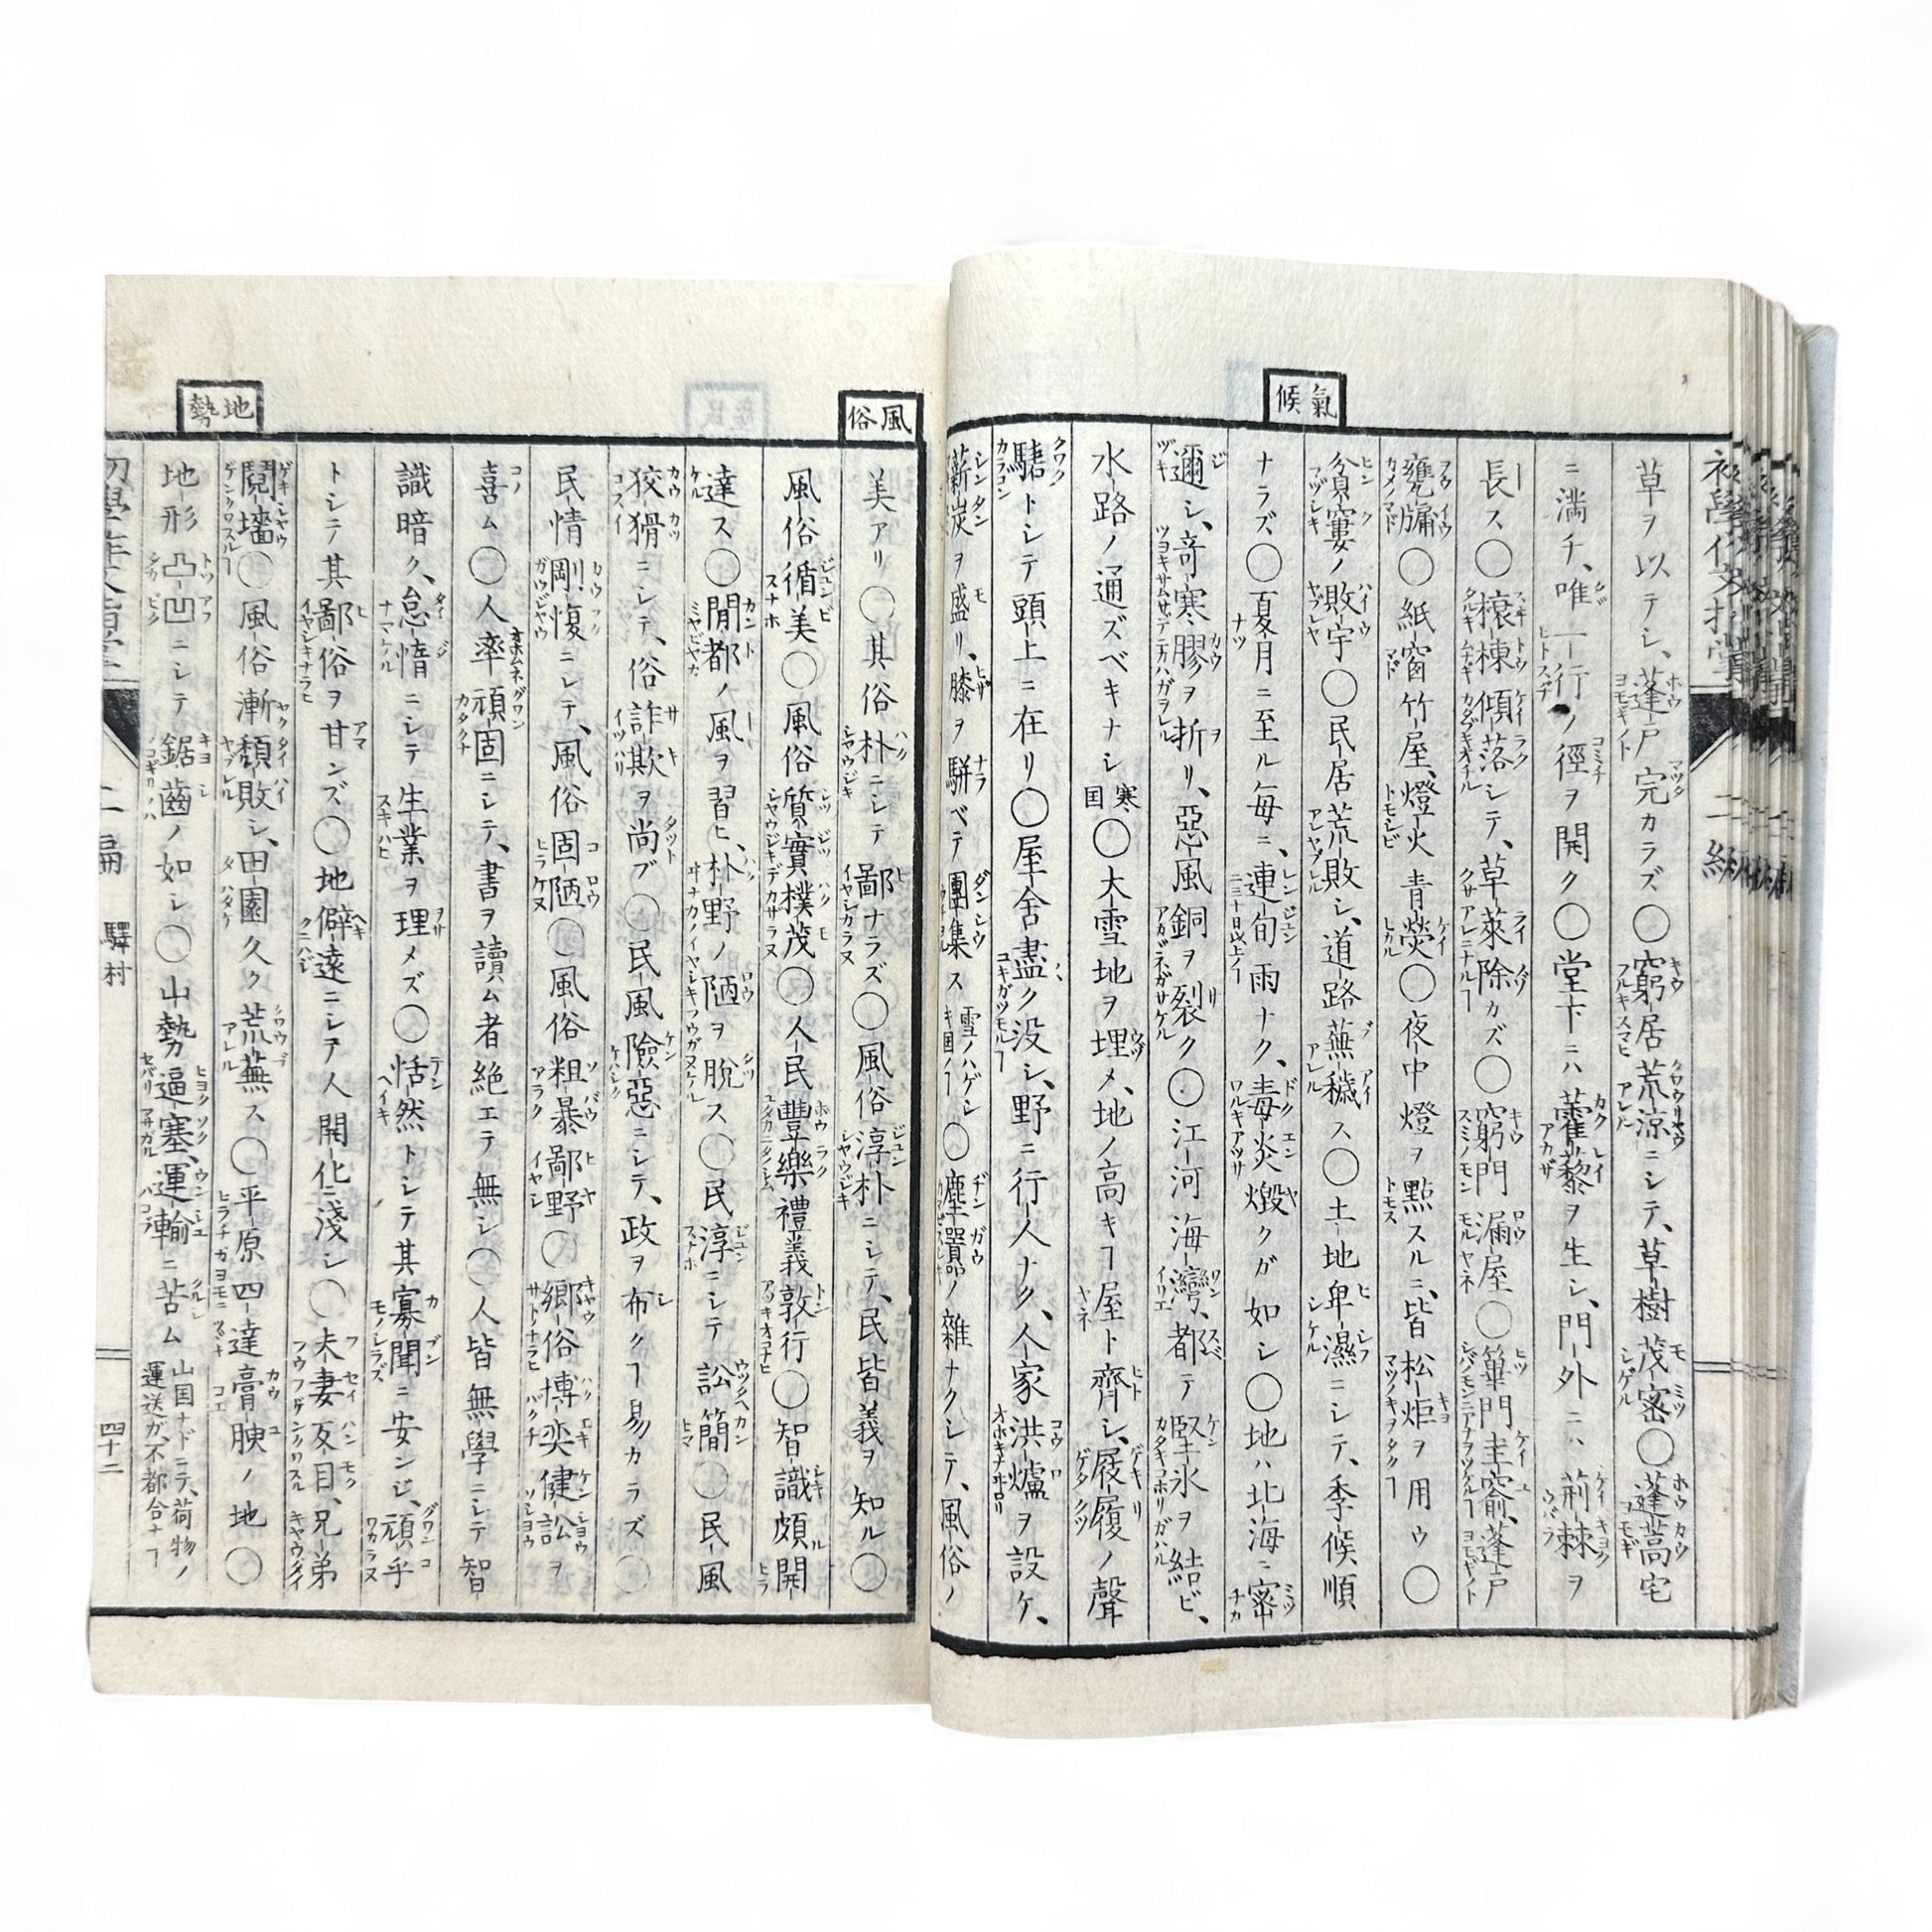 氣候
草ヲ以テシ、蓬戸完カラズ〇窮居荒涼ニシテ、草樹茂密〇蓬蒿宅
ニ満チ、唯一行ノ徑ヲ開ク〇堂下ニハ藿藜ヲ生シ、門外ニハ荊棘ヲ
長ス〇榱棟傾落シテ、草萊除カズ〇窮門漏屋〇篳門圭窬、蓬戸
甕牖〇紙窗竹屋、燈火青熒〇夜中燈ヲ點スルニ、皆松炬ヲ用ウ〇
貧窶ノ敗宇〇民居荒敗シ、道路蕪穢ス〇土地卑濕ニシテ、季候順
ナラズ〇夏月ニ至ル毎ニ、連旬雨ナク、毒炎燬クガ如シ〇地ハ北海ニ密
邇シ、奇寒膠ヲ折リ、惡風銅ヲ裂ク〇江河海灣、都テ堅氷ヲ結ビ、
水路ノ通ズベキナシ寒国〇大雪地ヲ埋メ、地ノ高キヿ屋ト齊シ、屐履ノ聲
騞トシテ頭上ニ在リ〇屋舍盡ク没シ、野ニ行人ナク、人家洪爐ヲ設ケ、
薪炭ヲ盛リ、膝ヲ駢ベテ團集ス雪ノハゲシキ国ノヿ〇塵囂ノ雜ナクシテ、風俗ノ
風俗
地勢
美アリ〇其俗朴ニシテ鄙ナラズ〇風俗淳朴ニシテ、民皆義ヲ知ル〇
風俗循美〇風俗質實撲茂〇人民豐樂禮義敦行〇智識頗開
達ス〇閒都ノ風ヲ習ヒ、朴野ノ陋ヲ脫ス〇民淳ニシテ訟簡〇民風
狡猾ニシテ、俗詐欺ヲ尚ブ〇民風險惡ニシテ、政ヲ布クヿ易カラズ〇
民情剛愎ニシテ、風俗固陋〇風俗粗暴鄙野〇鄉俗博奕健訟ヲ
喜ム〇人率頑固ニシテ、書ヲ讀ム者絶エテ無シ〇人皆無學ニシテ智
識暗ク、怠惰ニシテ生業ヲ理メズ〇恬然トシテ其寡聞ニ安ンジ、頑乎
トシテ其鄙俗ヲ甘ンズ〇地僻遠ニシテ人開化ニ淺シ〇夫妻反目、兄弟
鬩墻〇風俗漸頽敗シ、田園久ク荒蕪ス〇平原四達膏腴ノ地〇
地形凸凹ニシテ鋸齒ノ如シ〇山勢逼塞、運輸ニ苦ム山国ナドニテ、荷物ノ運送ガ不都合ナヿ
二編 驛村 四十二